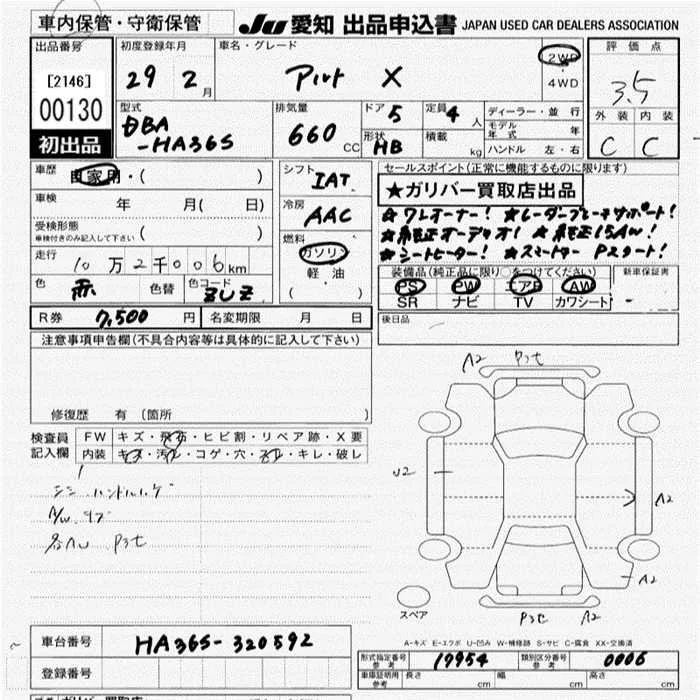 車内保管・守衛保管 JU 愛知 出品申込書 JAPAN USED CAR DEALERS ASSOCIATION
出品番号 初度登録年月 車名・グレード 評価点
[2146] 29 2月 アルト X 2WD ・ 4WD 3.5
00130
初出品
型式 排気量 ドア 5 定員 4人 ディーラー・並行 外装 内装
DBA-HA36S 660CC 形状 HB 積載 kg モデル年式 年 C C
ハンドル 左・右
車歴 自家用・( ) シフト IAT セールスポイント(正常に機能するものに限ります)
★ガリバー買取店出品
車検 年 月( 日) 冷房 AAC ★ワンオーナー! ★レーダーブレーキサポート!
受検形態 車検付きのみ記入して下さい ( ) 燃料 ★純正オーディオ! ★純正15AW!
走行 10万2千006km ガソリン ★シートヒーター! ★スマートキー Pスタート!
軽・油
( )
色 赤 色替 色コード ZUZ 装備品(純正品に限り○をつけてください) 新車保証書
PS PW エアB AW
SR ナビ TV カワシート -
R券 7,500円 名変期限 月 日 後日品
注意事項申告欄(不具合内容等は具体的に記入して下さい)
修復歴 有 〔箇所 〕
A2 P3セ
検査員記入欄 FW キズ・飛石・ヒビ割・リペア跡・X要
内装 キズ・汚れ・コゲ・穴・スレ・キレ・破レ
U2 A2
シミ ハンドルハゲ
A/W キズ
各AW P3セ
A2
スペア P3セ A2
A-キズ E-エクボ U-凹み W-補修跡 S-サビ C-腐食 XX-交換済
車台番号 HA36S-320592
型式指定番号 参考 17954 類別区分番号 参考 0006
登録番号
車庫証明用 参考 長さ cm 幅 cm 高さ cm
ガリバー買取店